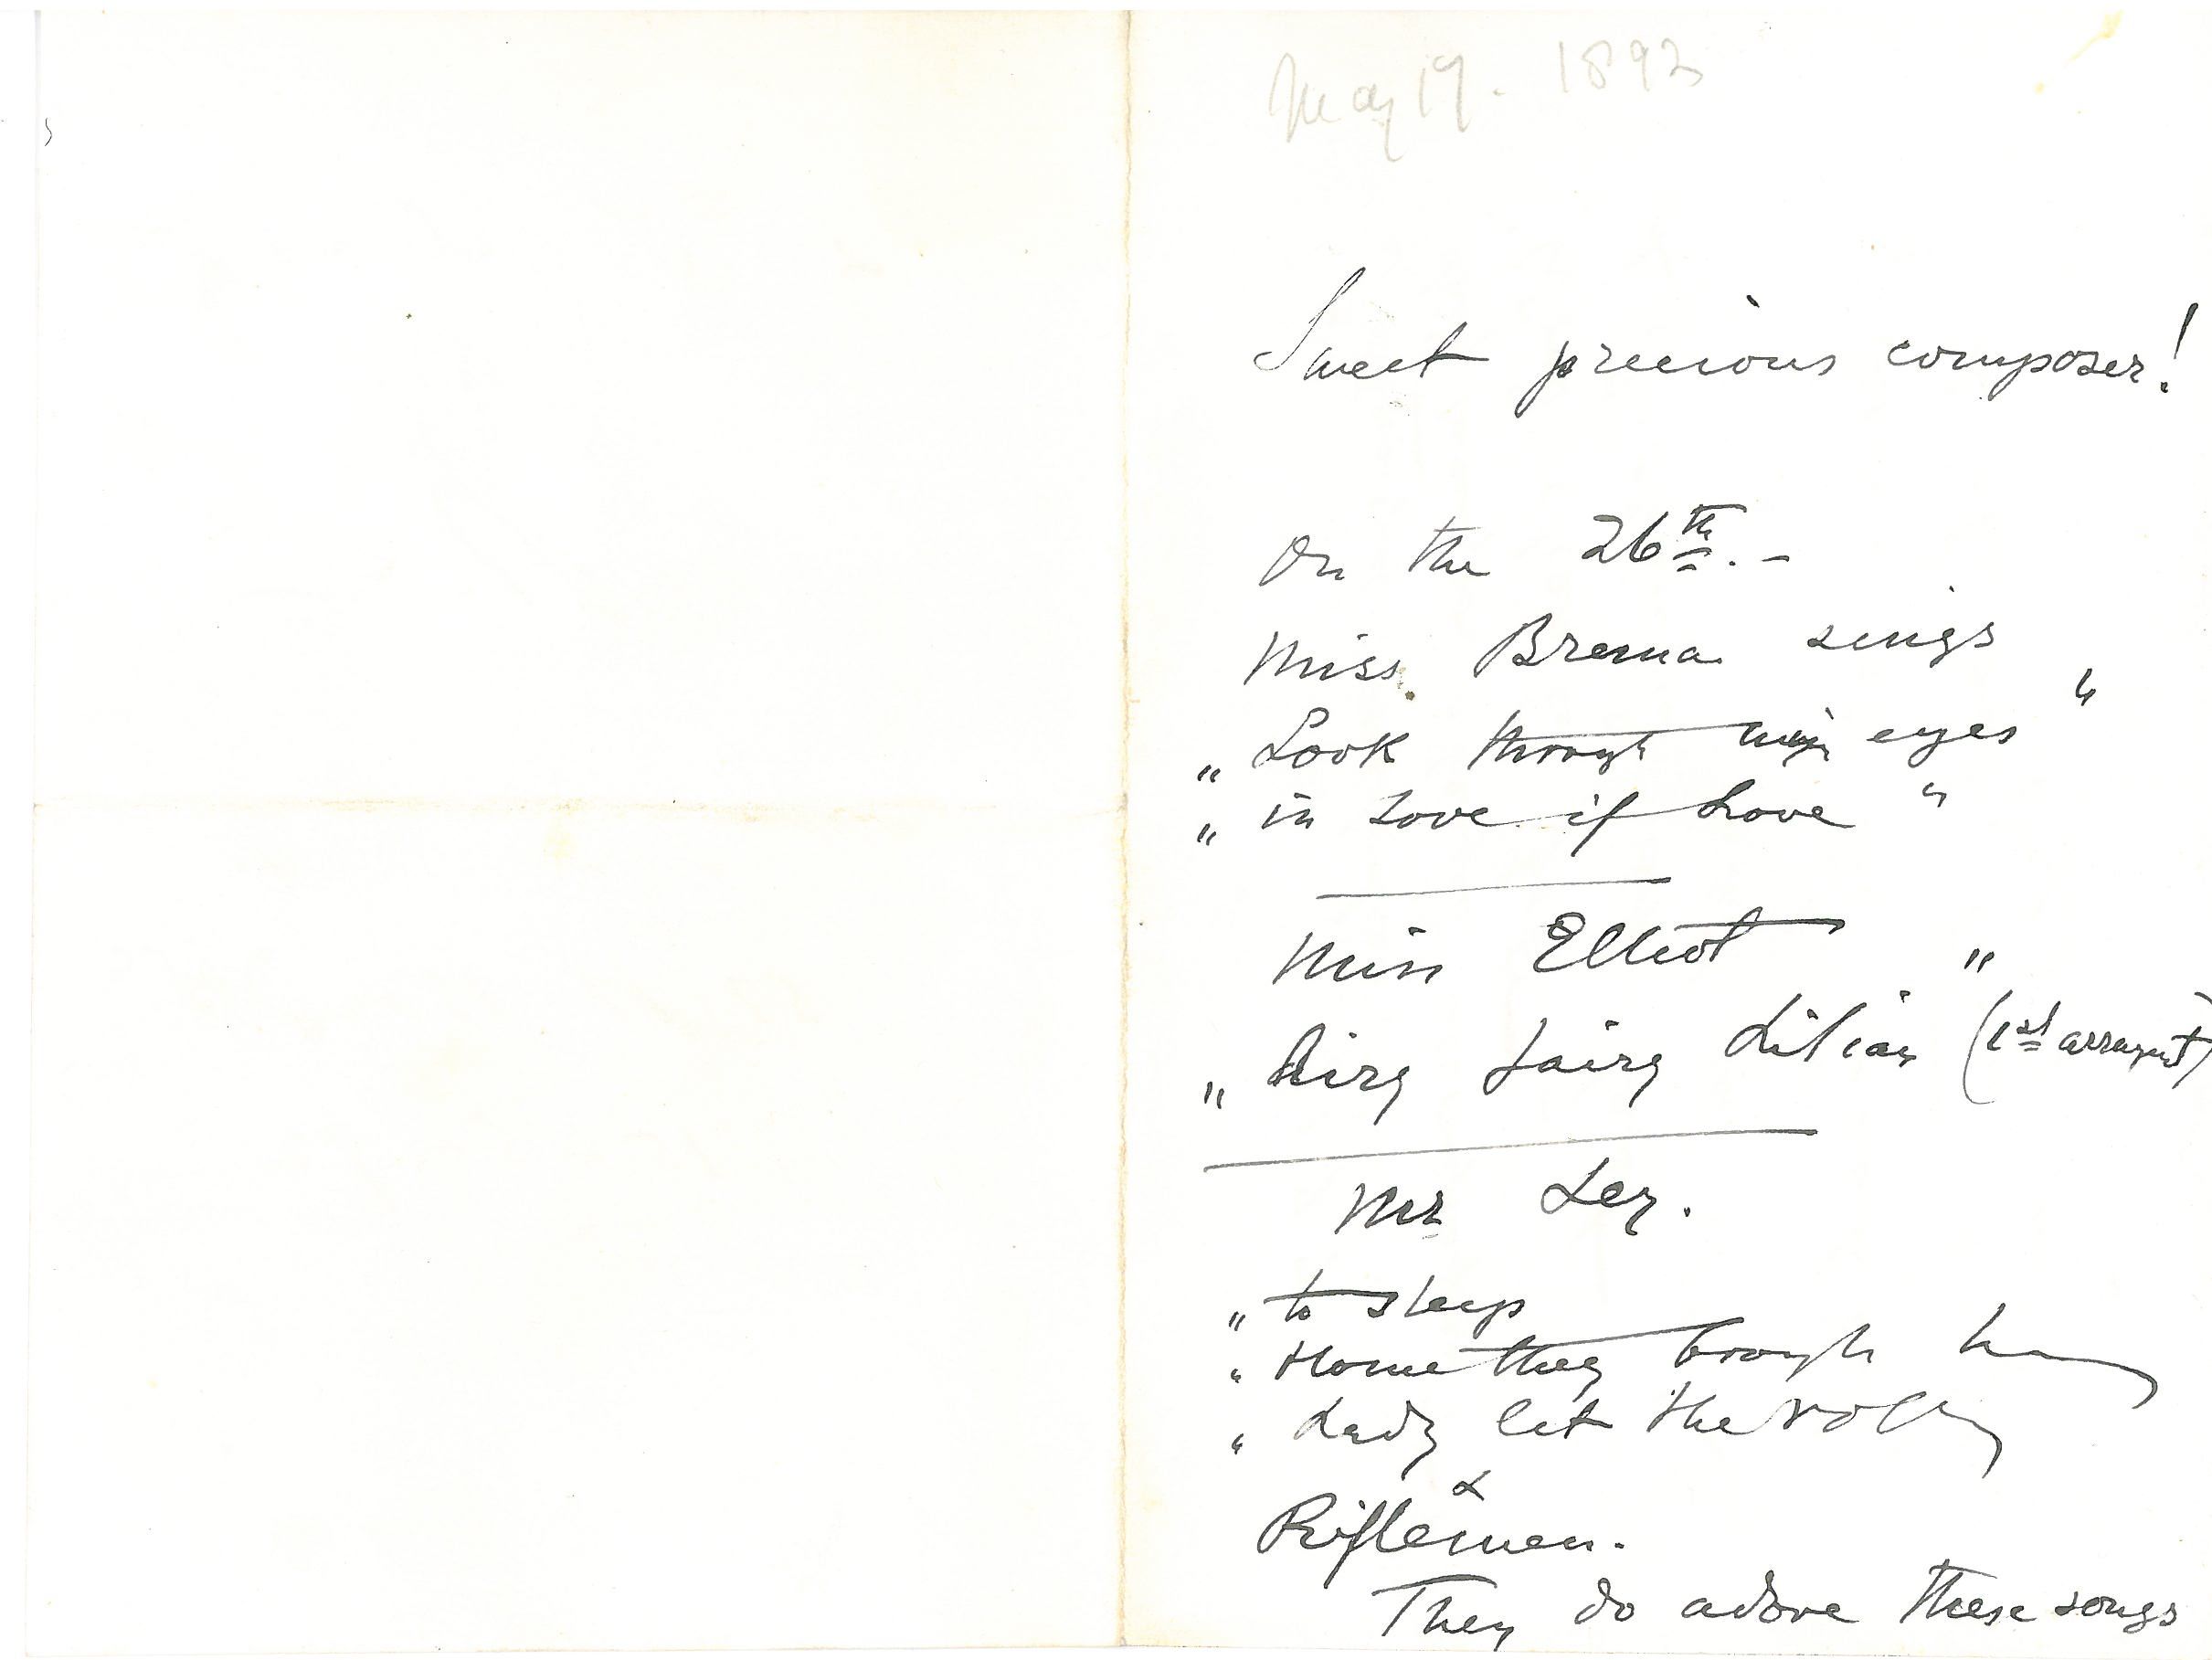 May 19. 1892
Sweet precious composer!
On the 26th. -
Miss Brema sings
„ Look through mine eyes "
„ in Love if Love "
Miss Elliot
„ Airy fairy Lilian " (1st arrangt)
Mr Ley.
„ to sleep
" Home they brough
" Lady let the rolling
&
Riflemen.
They do adore these songs